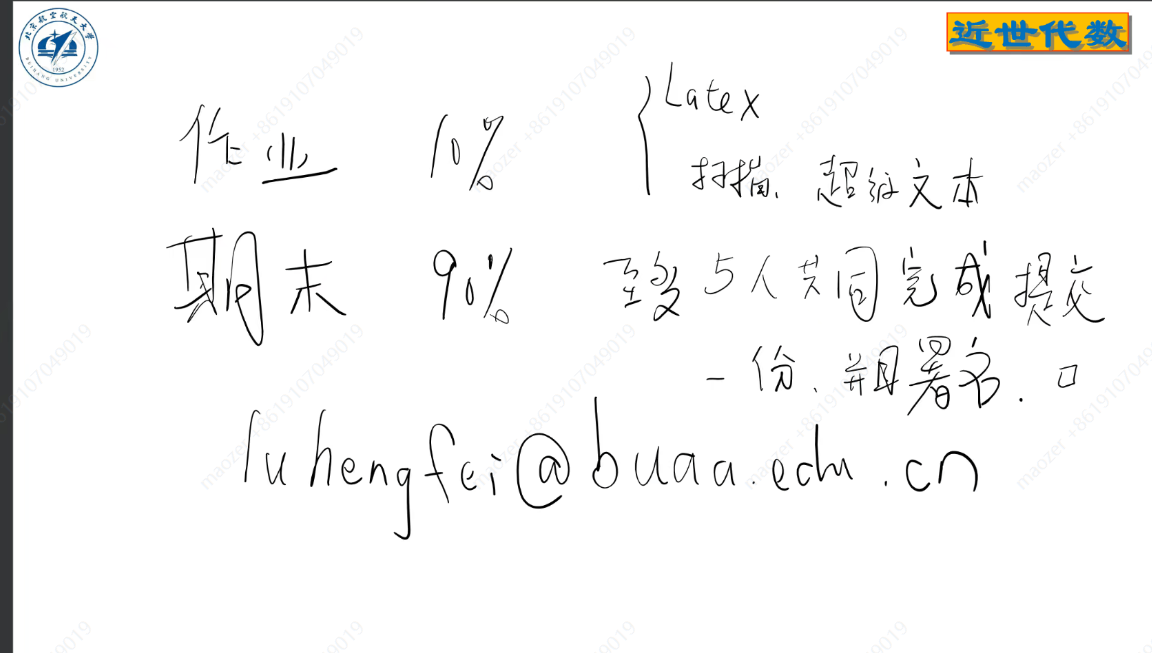 北京航空航天大学
BEIHANG UNIVERSITY
1952
近世代数
作业 10% { Latex
扫描、超级文本
期末 90% 至多5人共同完成提交
一份、并且署名.口
luhengfei@buaa.edu.cn
maozer +8619107049019